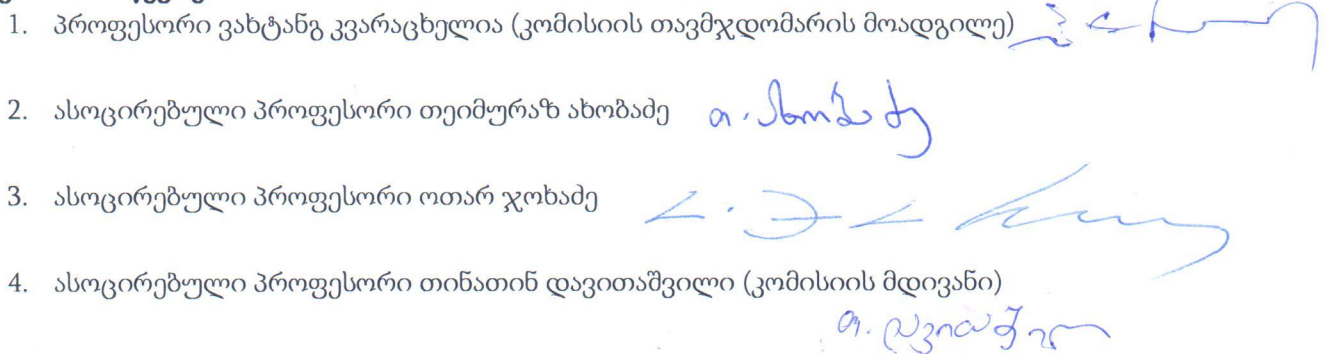 1. პროფესორი ვახტანგ კვარაცხელია (კომისიის თავმჯდომარის მოადგილე)
2. ასოცირებული პროფესორი თეიმურაზ ახობაძე თ. ახობაძე
3. ასოცირებული პროფესორი ოთარ ჯოხაძე
4. ასოცირებული პროფესორი თინათინ დავითაშვილი (კომისიის მდივანი)